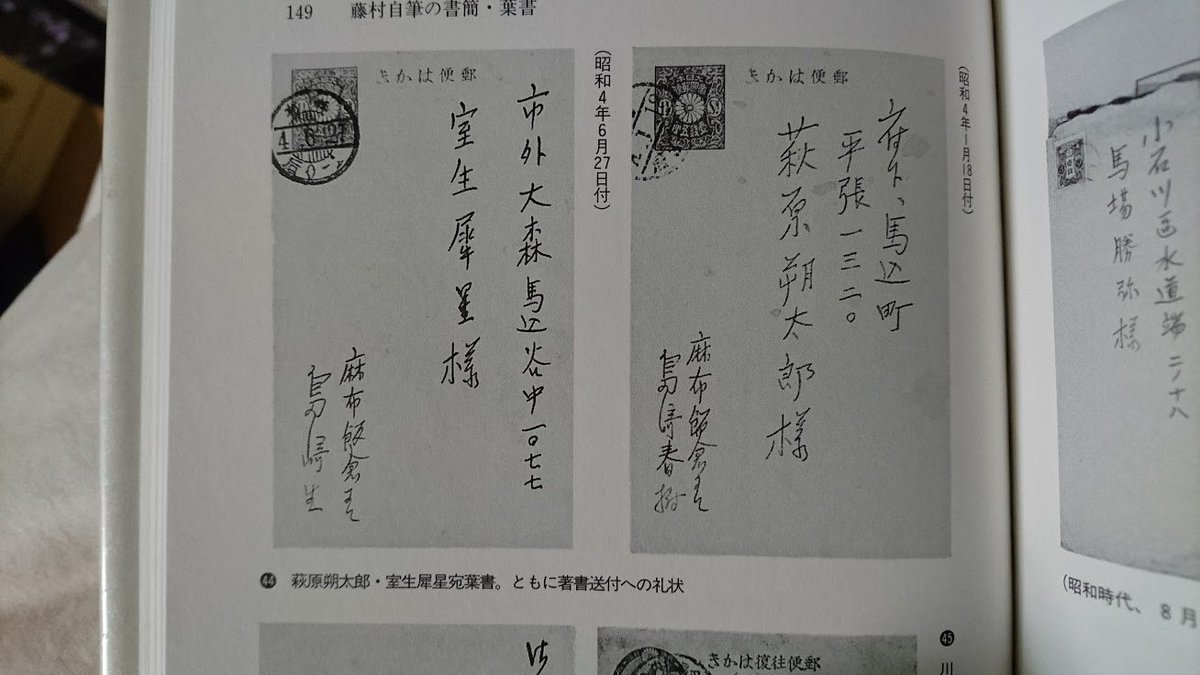 149 藤村自筆の書簡・葉書
(昭和4年1月18日付)
きかは便郵
府下、馬込町
平張一三二〇
萩原朔太郎様
麻布飯倉より
島崎春樹
(昭和4年6月27日付)
きかは便郵
4.6.27
市外大森馬込谷中一〇七七
室生犀星様
麻布飯倉より
島崎生
㊹ 萩原朔太郎・室生犀星宛葉書。ともに著書送付への礼状
小石川区水道端二ノ十八
馬場勝弥様
(昭和時代、8月
㊺ 川
きかは復往便郵